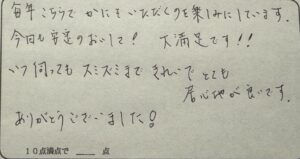 毎年こちらでかにをいただくのを楽しみにしています。
今回も安定のおいしさ! 大満足です!!
いつ伺ってもスミズミまできれいでとても
居心地が良いです。
ありがとうございました!
10点満点で 点